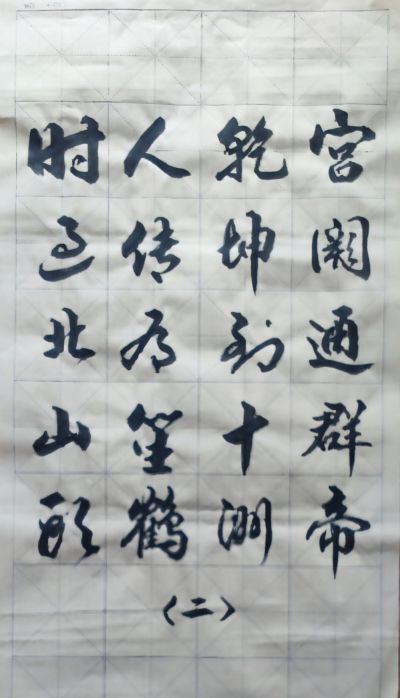 宫阙通群帝
乾坤到十洲
人传有笙鶴
时过北山頭
（二）